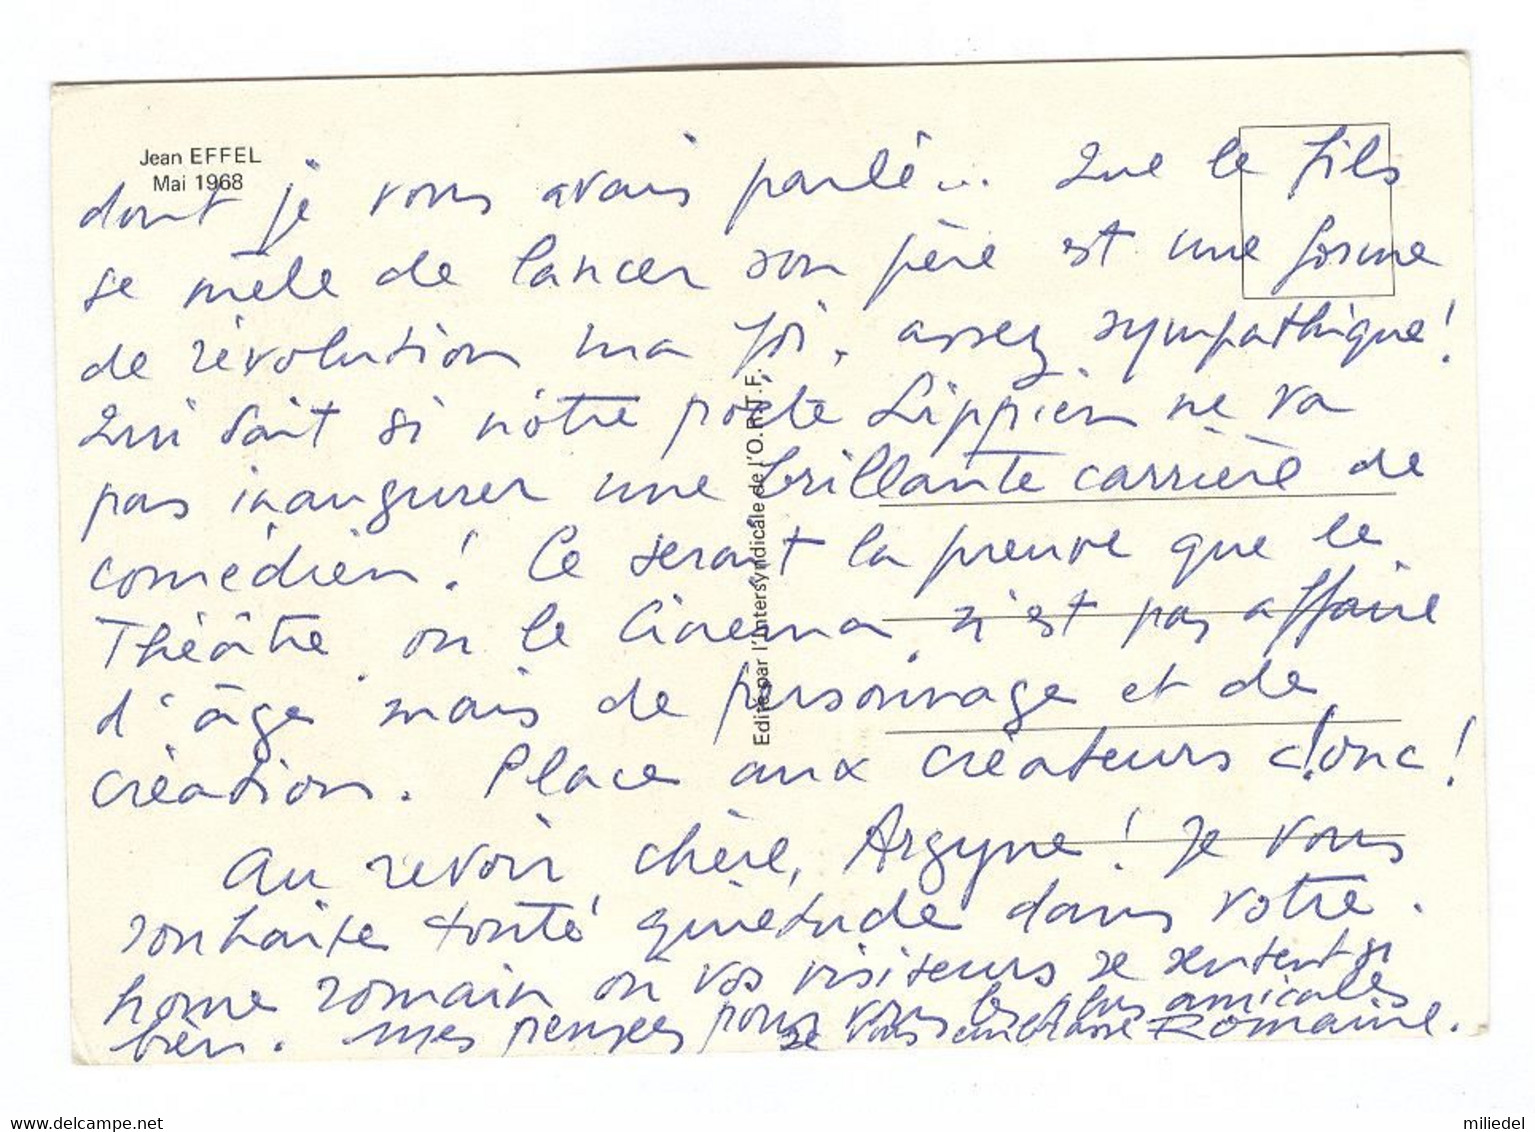 Jean EFFEL
Mai 1968
dont je vous avais parlé... Que le fils
se mêle de lancer son père est une forme
de révolution ma foi, assez sympathique!
Qui sait si nôtre poète Lippien ne va
pas inaugurer une brillante carrière de
comédien! Ce serait la preuve que le
Théâtre ou le Cinema n'est pas affaire
d'âge mais de personnage et de
création. Place aux créateurs donc!
Au revoir, chère, Argyne! Je vous
souhaite toute quiétude dans votre
home romain où vos visiteurs se sentent si
bien. Mes pensées pour vous les plus amicales
Je vous embrasse Romaine.
Edité par l'Intersyndicale de l'O.R.T.F.
www.delcampe.net
miliedel